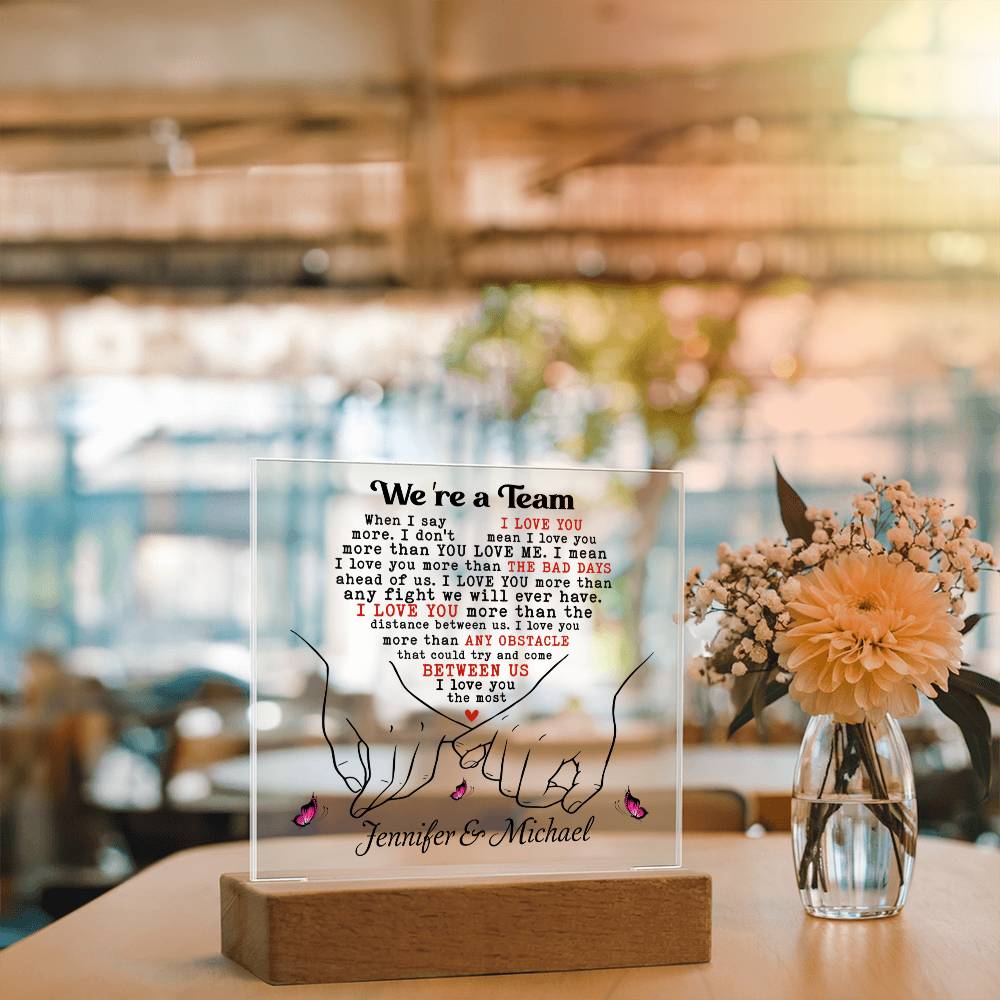 We're a Team
When I say I LOVE YOU
more. I don't mean I love you
more than YOU LOVE ME. I mean
I love you more than THE BAD DAYS
ahead of us. I LOVE YOU more than
any fight we will ever have.
I LOVE YOU more than the
distance between us. I love you
more than ANY OBSTACLE
that could try and come
BETWEEN US
I love you
the most
Jennifer & Michael